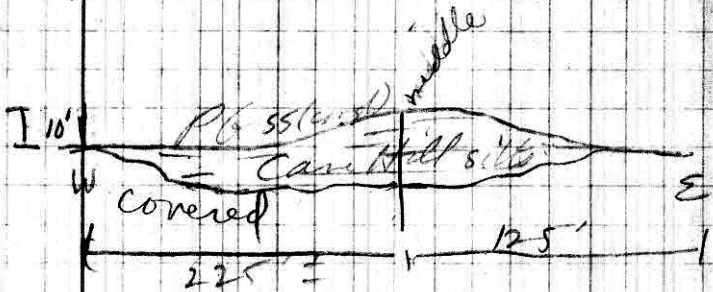 middle
10'
PG ss (und)
Cane Hill silts
W
covered
E
225' ±
125'